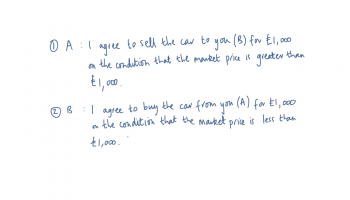 ① A : I agree to sell the car to you (B) for £1,000
on the condition that the market price is greater than
£1,000.
② B : I agree to buy the car from you (A) for £1,000
on the condition that the market price is less than
£1,000.